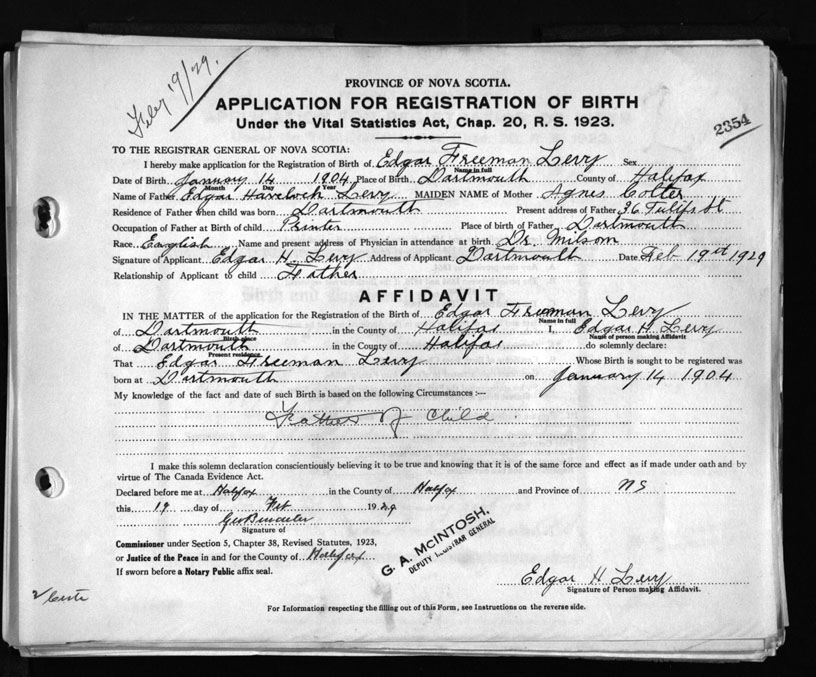 Feby 19/29.
PROVINCE OF NOVA SCOTIA.
APPLICATION FOR REGISTRATION OF BIRTH
Under the Vital Statistics Act, Chap. 20, R. S. 1923.
2354
TO THE REGISTRAR GENERAL OF NOVA SCOTIA:
I hereby make application for the Registration of Birth of Edgar Freeman Levy Sex
Name in full
Date of Birth January 14 1904 Place of Birth Dartmouth County of Halifax
Month Day Year
Name of Father Edgar Havelock Levy MAIDEN NAME of Mother Agnes Colter
Residence of Father when child was born Dartmouth Present address of Father 36 Tulip St
Occupation of Father at Birth of child Printer Place of birth of Father Dartmouth
Race English Name and present address of Physician in attendance at birth Dr. Milsom
Signature of Applicant Edgar H. Levy Address of Applicant Dartmouth Date Feb 19th 1929
Relationship of Applicant to child Father
AFFIDAVIT
IN THE MATTER of the application for the Registration of the Birth of Edgar Freeman Levy
Name in full
of Dartmouth in the County of Halifax I, Edgar H Levy
Birth place Name of person making Affidavit
of Dartmouth in the County of Halifax do solemnly declare:
Present residence
That Edgar Freeman Levy Whose Birth is sought to be registered was
born at Dartmouth on January 14 1904
My knowledge of the fact and date of such Birth is based on the following Circumstances :—
Father of Child
I make this solemn declaration conscientiously believing it to be true and knowing that it is of the same force and effect as if made under oath and by
virtue of The Canada Evidence Act.
Declared before me at Halifax in the County of Halifax and Province of NS
this 19 day of Feb 1929
Signature of
Commissioner under Section 5, Chapter 38, Revised Statutes, 1923,
or Justice of the Peace in and for the County of Halifax
If sworn before a Notary Public affix seal.
G. A. McINTOSH,
DEPUTY REGISTRAR GENERAL
Edgar H Levy
Signature of Person making Affidavit.
For Information respecting the filling out of this Form, see Instructions on the reverse side.